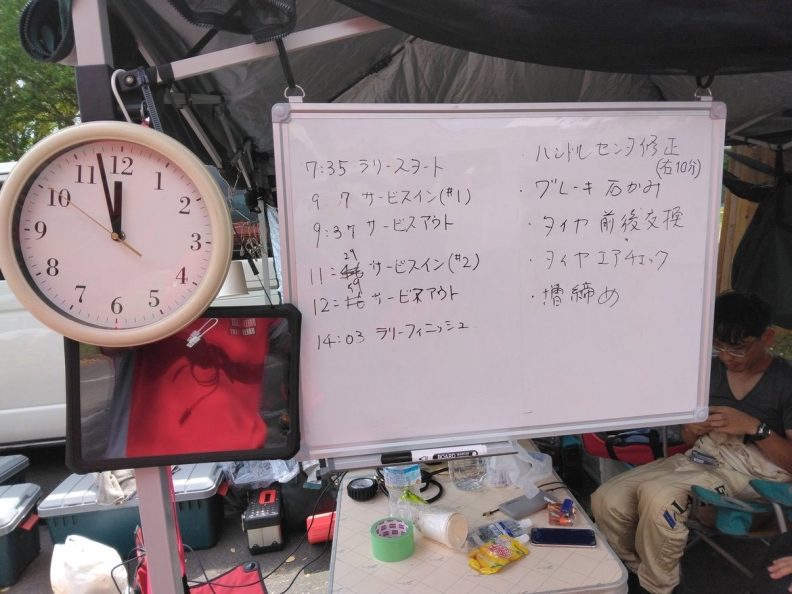 12
1
2
3
4
5
6
7
8
9
10
11
7:35 ラリースタート
9 7 サービスイン(#1)
9:37 サービスアウト
29
11: サービスイン(#2)
59
12: サービスアウト
14:03 ラリーフィニッシュ
・ハンドルセンタ修正
(右10分)
・ブレーキ石かみ
・タイヤ 前後交換
・タイヤエアチェック
・増締め
BOARD